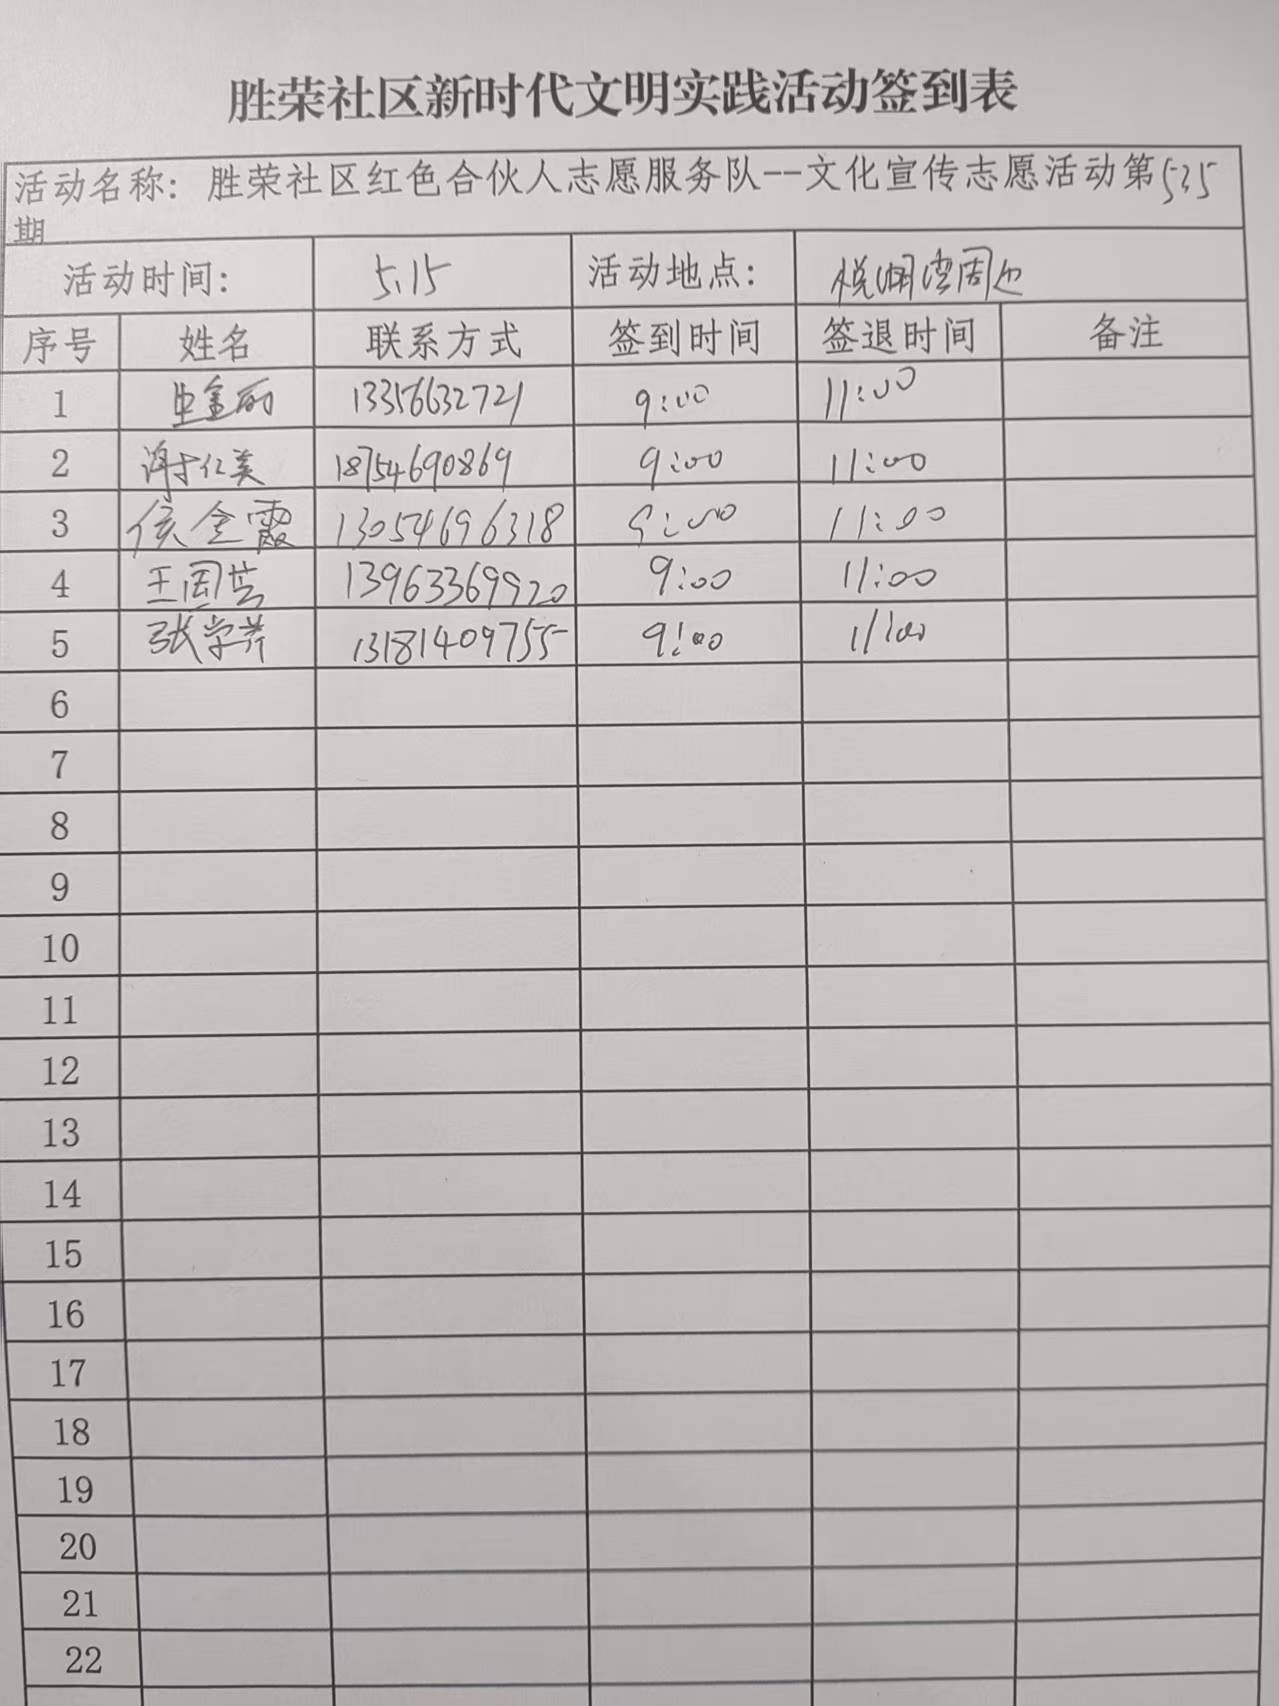 胜荣社区新时代文明实践活动签到表
活动名称：胜荣社区红色合伙人志愿服务队--文化宣传志愿活动第535
期
活动时间： 5.15 活动地点： 悦湖湾周边
序号 姓名 联系方式 签到时间 签退时间 备注
1 13356632721 9:00 11:00
2 18754690869 9:00 11:00
3 侯金霞 13054696318 9:00 11:00
4 王国芸 13963369920 9:00 11:00
5 张学芹 13181409755 9:00 11:00
6
7
8
9
10
11
12
13
14
15
16
17
18
19
20
21
22